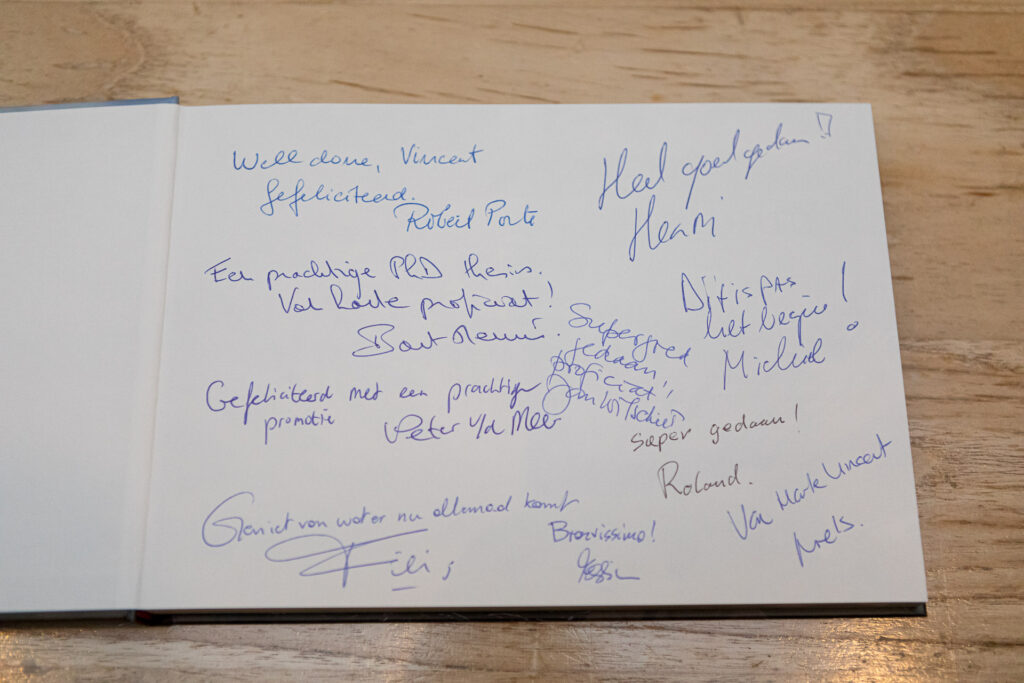 Well done, Vincent
Gefeliciteerd.
Robert Porte
Heel goed gedaan!
Henri
Een prachtige PhD thesis.
Van harte proficiat!
Bart
Dit is pas
het begin!
Michiel
Supergoed
gedaan,
proficiat!
Jan
Gefeliciteerd met een prachtige
promotie
Peter v/d Meer
Super gedaan!
Roland.
Geniet van wat er nu allemaal komt
Bravissimo!
Van Harte Vincent
Niels.